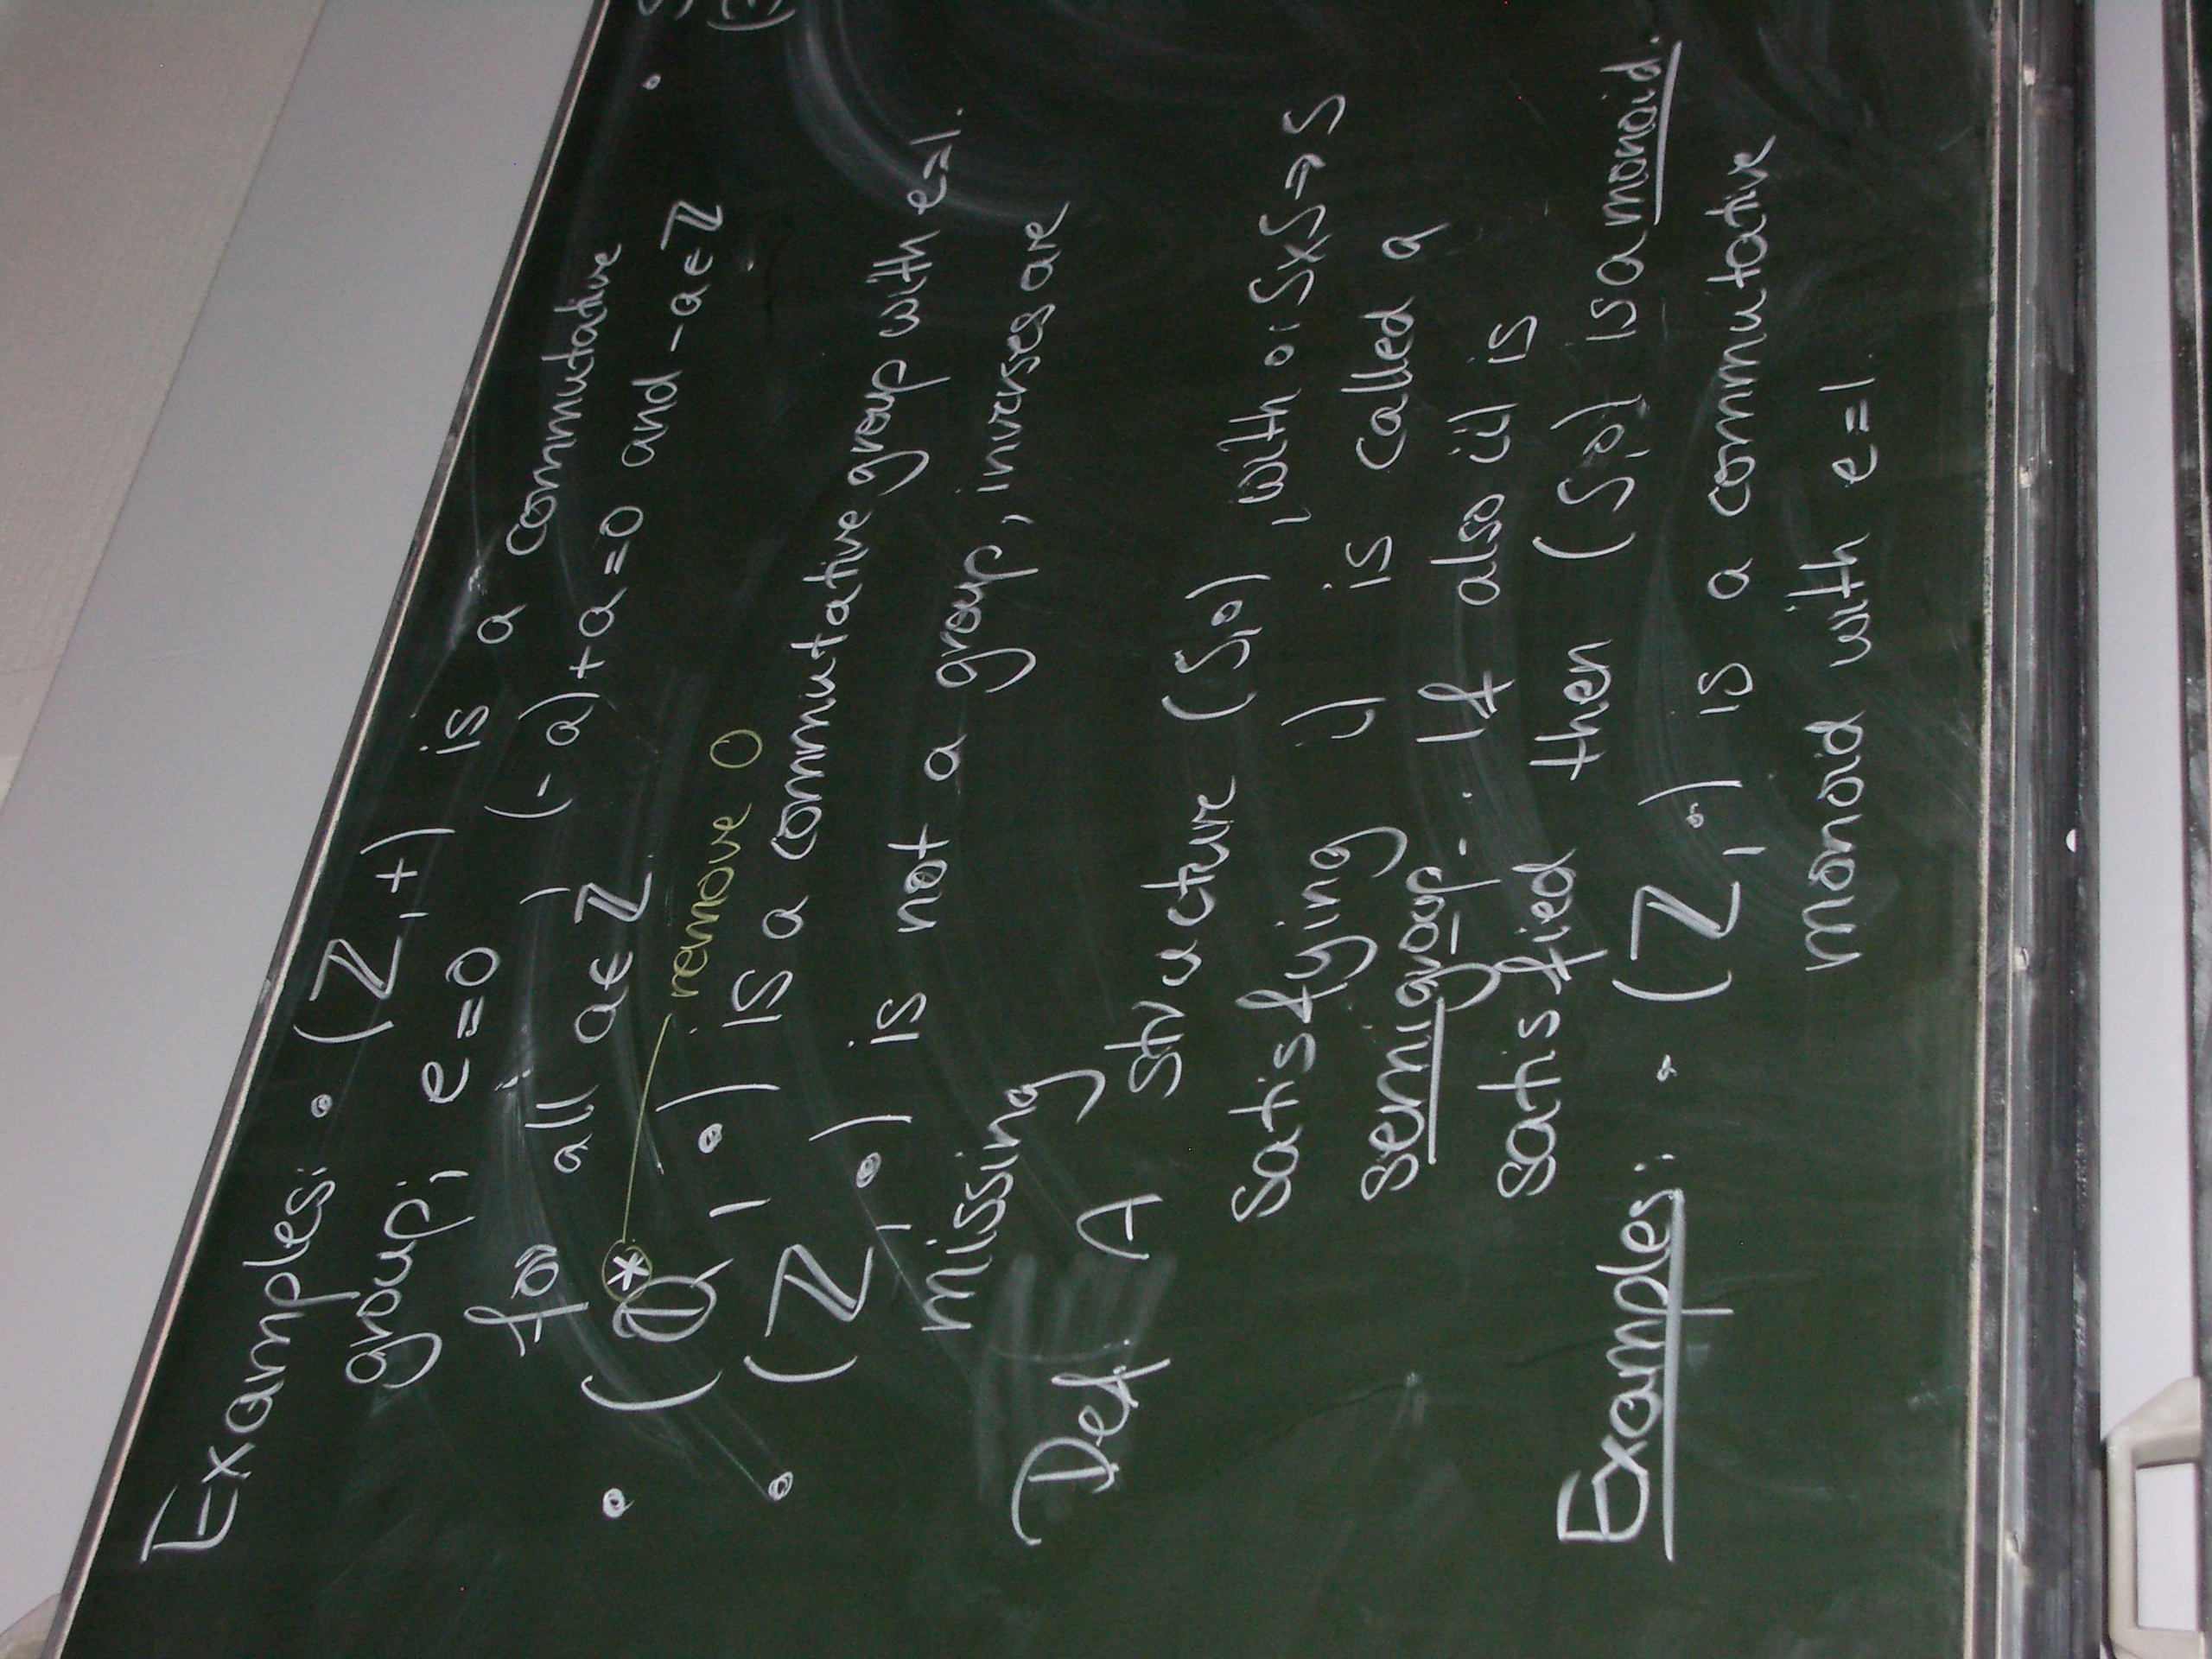 Examples: • (ℤ,+) is a commutative
group; e=0, (-a)+a=0 and -a∈ℤ
for all a∈ℤ.
remove 0
• (ℚ*,•) is a commutative group with e=1.
• (ℤ,•) is not a group, inverses are
missing
Def. A structure (S,∘), with ∘: S×S→S
satisfying i) is called a
semigroup. If also ii) is
satisfied then (S,∘) is a monoid.
Examples: • (ℤ,•) is a commutative
monoid with e=1